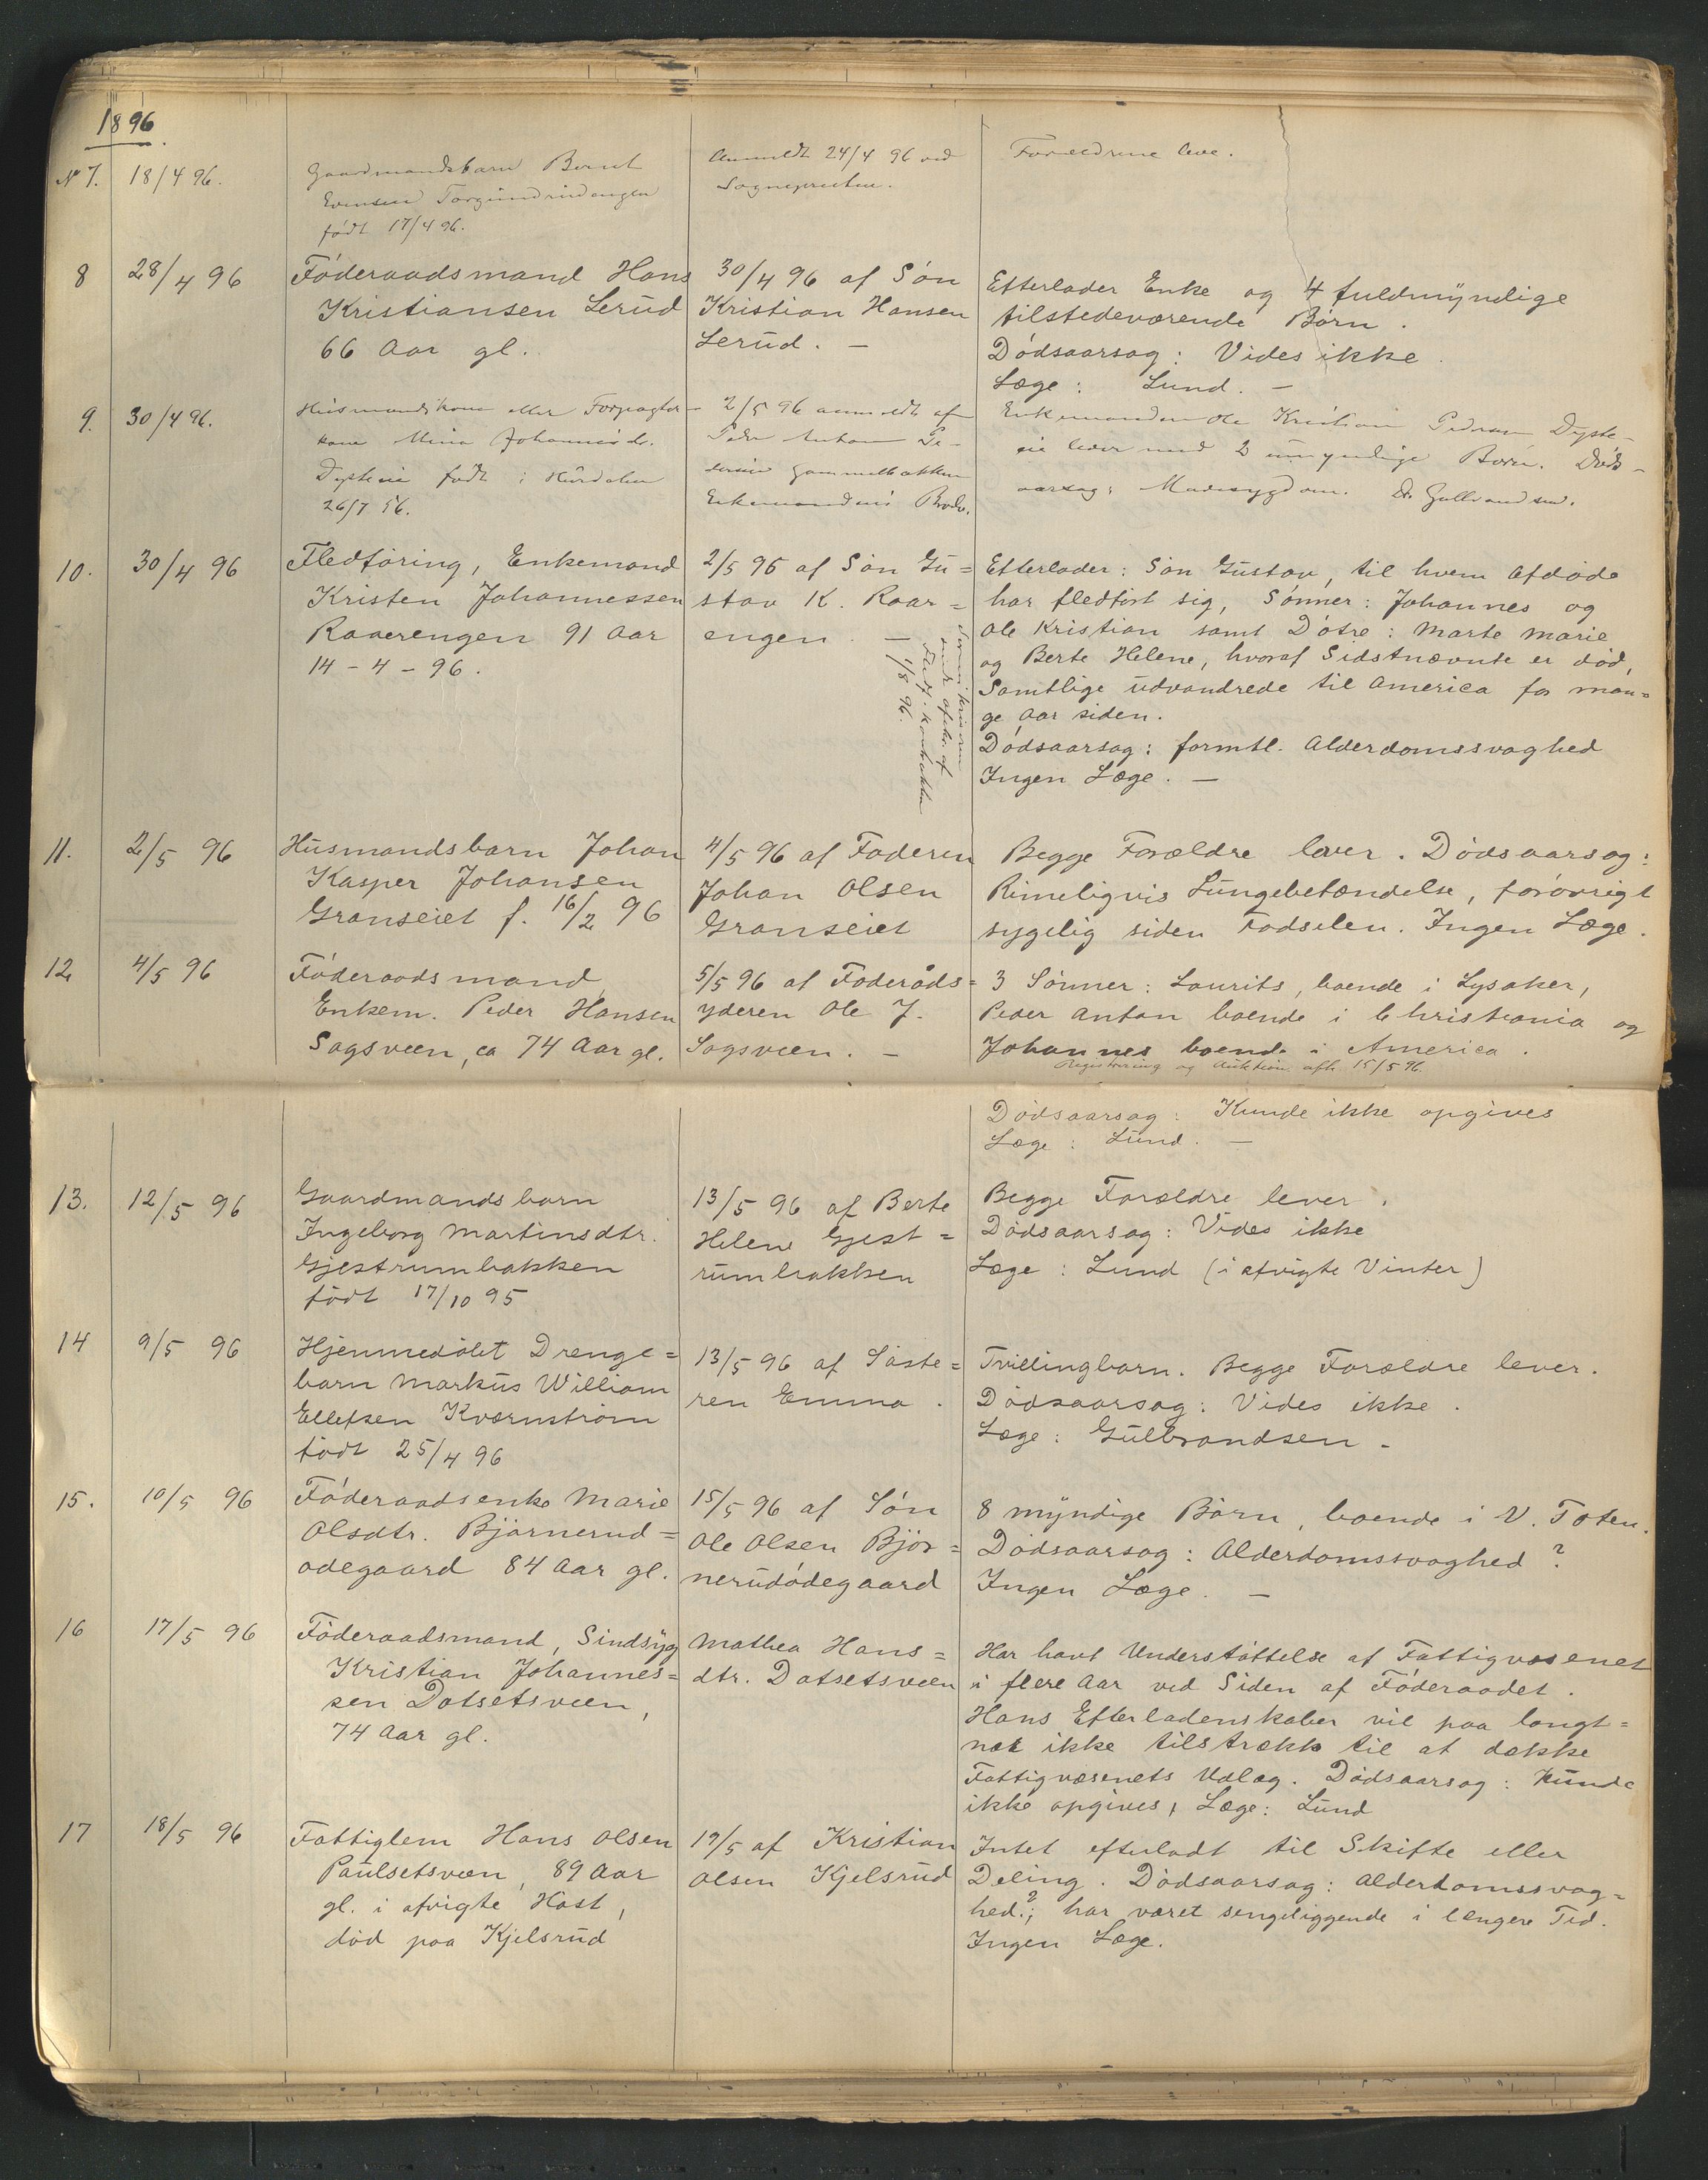 1896
No 7. 18/4 96. Gaardmandsbarn Bernt
Evensen
født 17/4 96.
Anmeldt 24/4 96 ved
Sognepresten.
Forældrene leve.
8 28/4 96 Føderaadsmand Hans
Kristiansen Lerud
66 Aar gl.
30/4 96 af Søn
Kristian Hansen
Lerud. —
Efterlader Enke og 4 fuldmyndige
tilstedeværende Børn.
Dødsaarsag: Vides ikke.
Læge: Lund. —
9. 30/4 96. Husmandskone eller Forpagter-
kone Mina Johannesd.
Dysteeie født i Hurdalen
26/7 56.
2/5 96 anmeldt af
Peder Anton Pe-
dersen Gammelbakken
Enkemandens Broder.
Enkemanden Ole Kristian Pedersen Dyste-
eie lever med 2 umyndige Børn. Døds-
aarsag: Mavesygdom. Dr. Gulbrandsen.
10. 30/4 96 Fledføring, Enkemand
Kristen Johannessen
Raaerengen 91 Aar
14-4-96.
2/5 96 af Søn Gu=
stav K. Raar=
engen. —
1/8 96.
Efterlader: Søn Gustav, til hvem Afdøde
har fledført sig, Sønner: Johannes og
Ole Kristian samt Døtre: Marte Marie
og Berte Helene, hvoraf Sidstnævnte er død,
Samtlige udvandrede til America for man=
ge Aar siden.
Dødsaarsag: formtl. Alderdomssvaghed
Ingen Læge. —
11. 2/5 96 Husmandsbarn Johan
Kasper Johansen
Granseiet f. 16/2 96
4/5 96 af Faderen
Johan Olsen
Granseiet
Begge Forældre lever. Dødsaarsag:
Rimeligvis Lungebetændelse, forøvrigt
sygelig siden Fødselen. Ingen Læge.
12 4/5 96 Føderaadsmand,
Enkem. Peder Hansen
Sagsveen, ca 74 Aar gl.
5/5 96 af Føderåds=
yderen Ole J.
Sagsveen. —
3 Sønner: Laurits, boende i Lysaker,
Peder Anton boende i Christiania og
Johannes boende i America.
Registrering og Auktion afh. 15/5 96.
Dødsaarsag: Kunde ikke opgives
Læge: Lund. —
13. 12/5 96 Gaardmandsbarn
Ingeborg Martinsdtr.
Gjestrumbakken
født 17/10 95
13/5 96 af Berte
Helene Gjest=
rumbakken
Begge Forældre lever.
Dødsaarsag: Vides ikke
Læge: Lund (i afvigte Vinter)
14 9/5 96 Hjemmedøbt Drenge=
barn Markus William
Ellefsen Kværnstrøm
født 25/4 96
13/5 96 af Søste=
ren Emma.
Tvillingbarn. Begge Forældre lever.
Dødsaarsag: Vides ikke.
Læge: Gulbrandsen -
15. 10/5 96 Føderaadsenke Marie
Olsdtr. Bjørnerud=
ødegaard 84 Aar gl.
15/5 96 af Søn
Ole Olsen Bjør=
nerudødegaard
8 myndige Børn, boende i V. Toten.
Dødsaarsag: Alderdomssvaghed?
Ingen Læge. —
16 17/5 96 Føderaadsmand, Sindsyg
Kristian Johannes=
sen Dotsetsveen,
74 Aar gl.
Mathea Hans=
dtr. Dotsetsveen
Har havt Understøttelse af Fattigvæsenet
i flere Aar ved Siden af Føderaadet.
Hans Efterladenskaber vil paa langt=
nær ikke tilstrække til at dække
Fattigvæsenets Udlæg. Dødsaarsag: Kunde
ikke opgives, Læge: Lund
17 18/5 96 Fattiglem Hans Olsen
Paulsetsveen, 89 Aar
gl. i afvigte Høst,
død paa Kjelsrud
19/5 af Kristian
Olsen Kjelsrud
Intet efterladt til Skifte eller
Deling. Dødsaarsag: Alderdomssvag=
hed?; har været sengeliggende i længere Tid.
Ingen Læge.